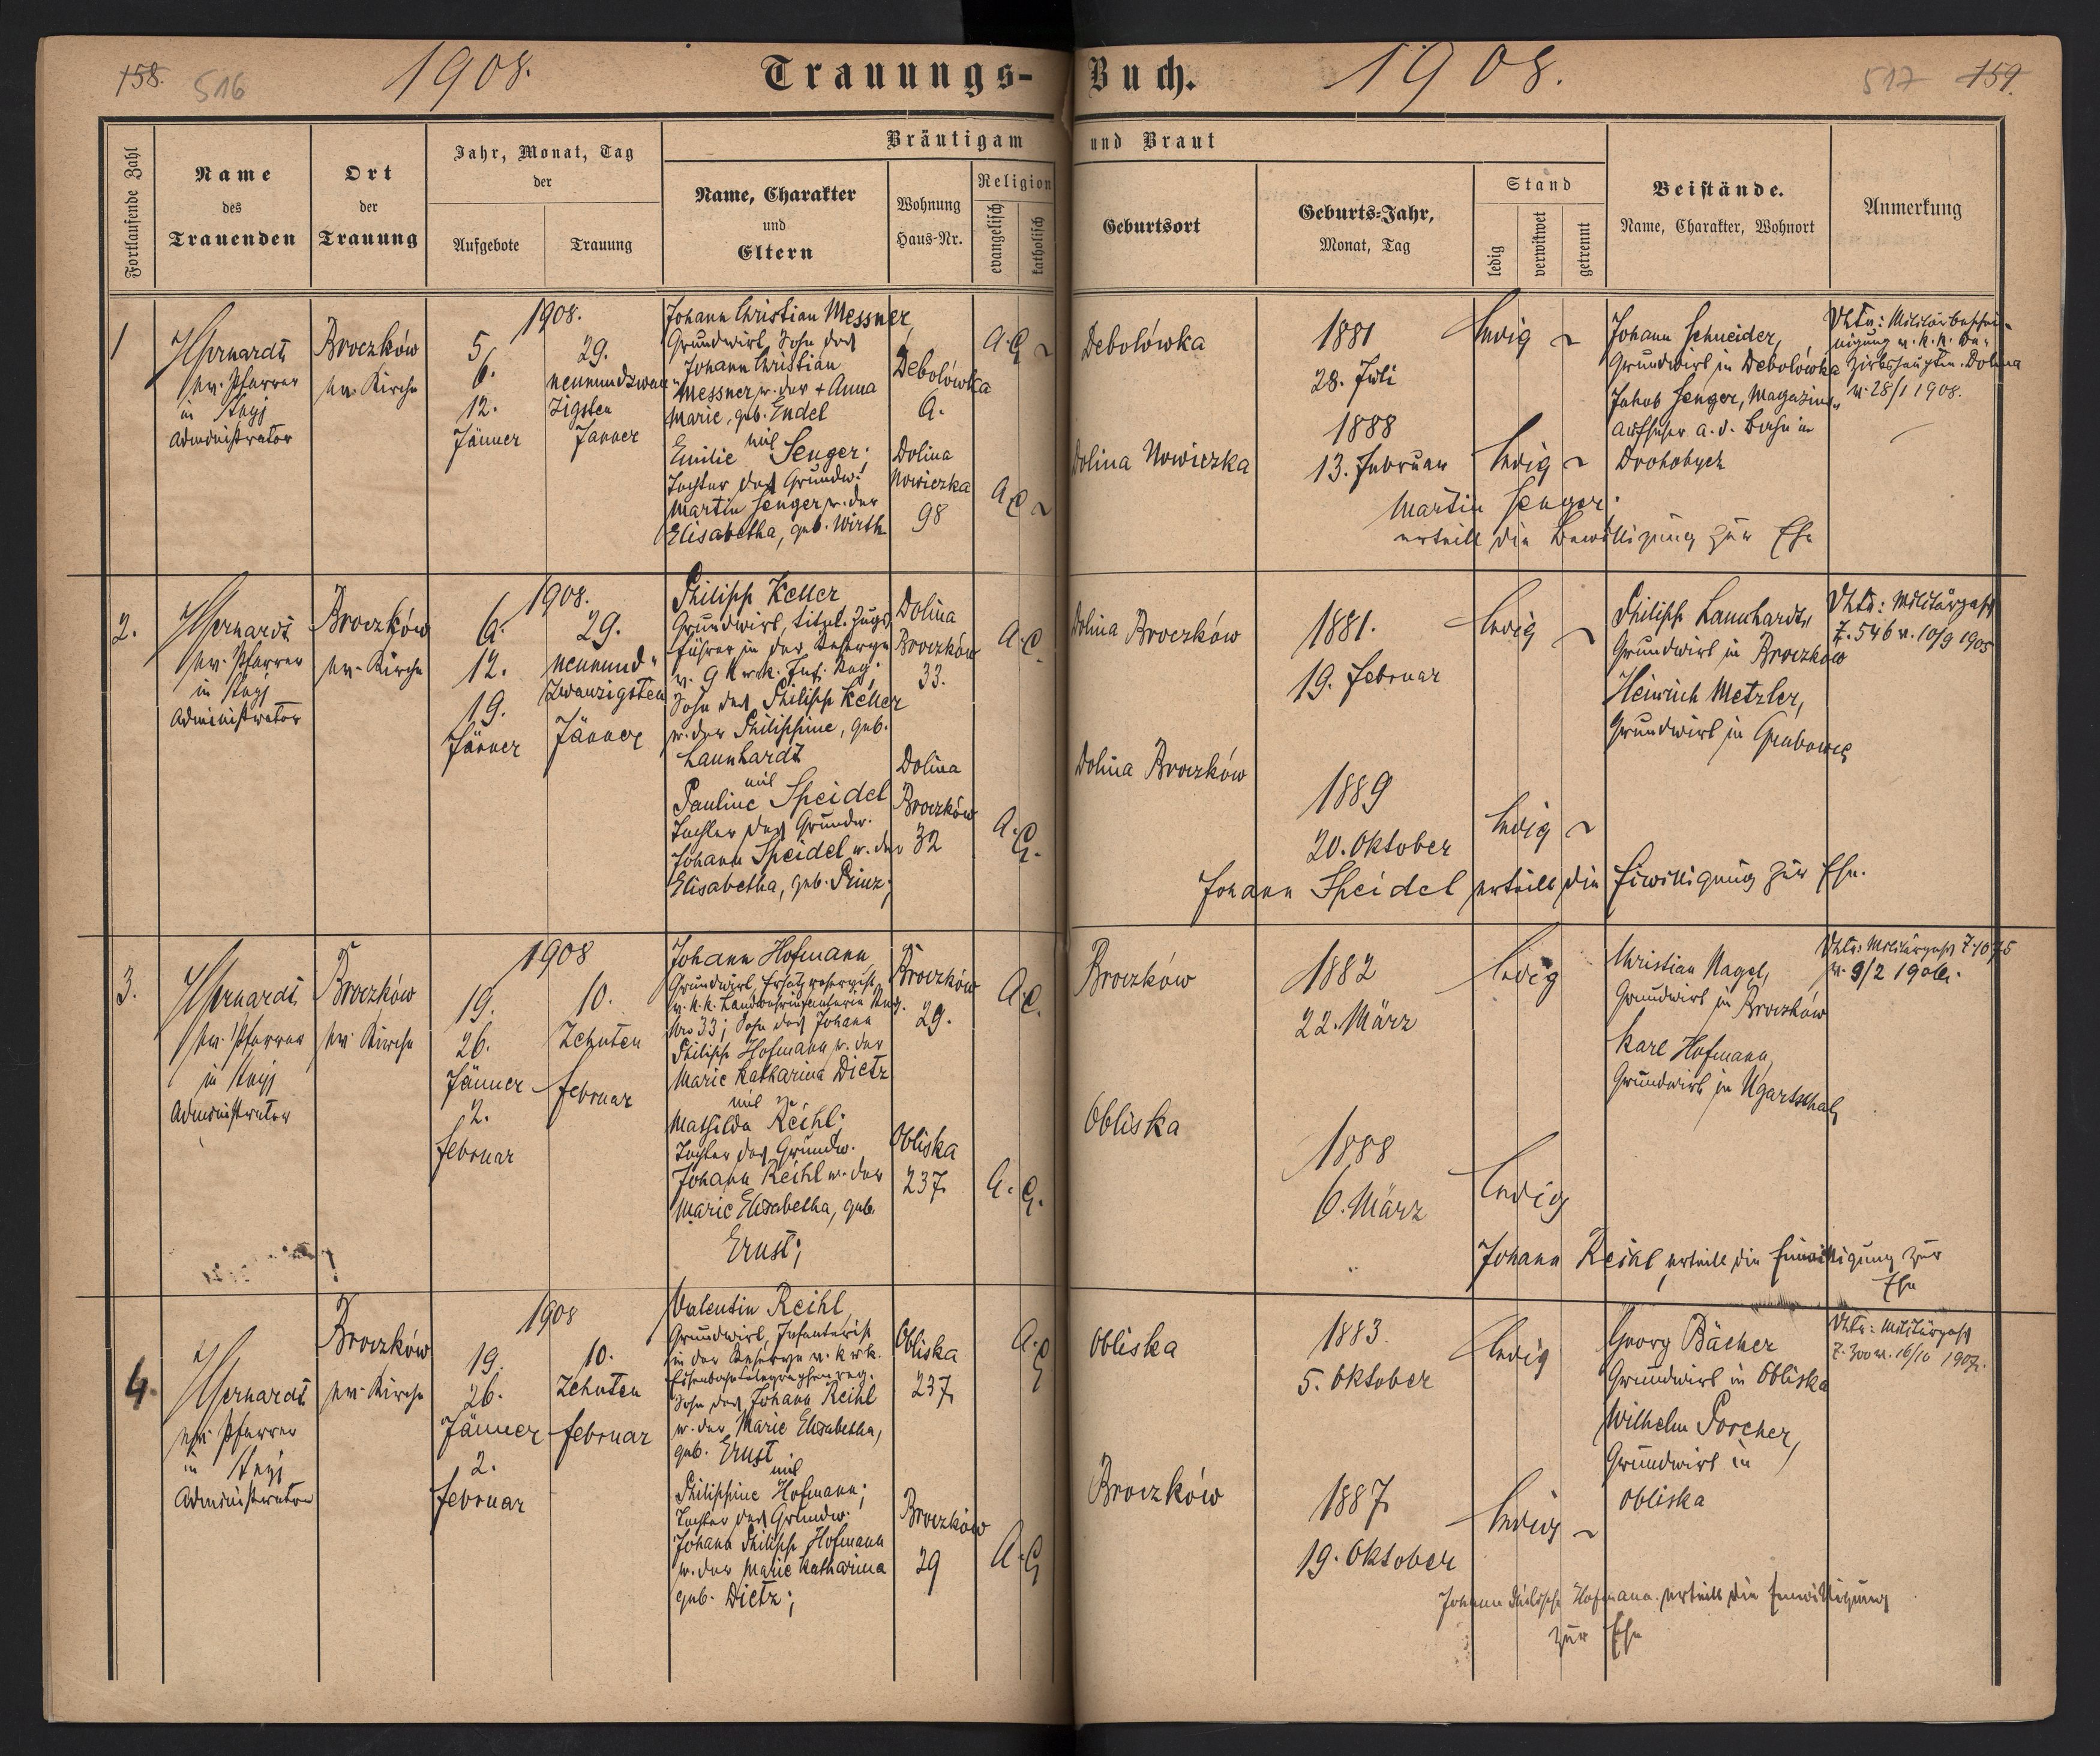 158. 516 1908. Trauungs-Buch. 1908. 517 159.
Fortlaufende Zahl
Name des Trauenden
Ort der Trauung
Jahr, Monat, Tag der
Aufgebote
Trauung
Bräutigam und Braut
Name, Charakter und Eltern
Wohnung Haus-Nr.
Religion
evangelisch
katholisch
Geburtsort
Geburts-Jahr, Monat, Tag
Stand
ledig
verwitwet
getrennt
Beistände.
Name, Charakter, Wohnort
Anmerkung
1
ev. Pfarrer
in Stryj
Administrator
Broczków
ev. Kirche
1908.
5.
6.
12.
Jänner
29.
neunundzwan-
zigsten
Janner
Johann Christian Messner,
Grundwirt, Sohn des
Johann Christian
Messner u. der + Anna
Marie, geb. Endel
mit
Emilie Senger;
Tochter des Grundw.
Martin Senger u. der
Elisabetha, geb. Wirth
Debolówka
Dolina
Nowiczka
98
A. C.
A. C.
Debolówka
Dolina Nowiczka
1881
28. Juli
1888
13. Februar
ledig
ledig
Martin Senger
erteilt die Bewilligung zur Ehe
Johann Schneider,
Grundwirt in Debolówka
Jakob Senger, Magazins-
aufseher a. d. Bahn in
Drohobycz
Militärbeschei-
nigung u. k. k. Be-
zirkshauptm. Dolina
v. 28/1 1908.
2.
ev. Pfarrer
in Stryj
Administrator
Broczków
ev. Kirche
1908.
6.
12.
19.
Jänner
29.
neunund-
zwanzigsten
Jänner
Philipp Keller
Grundwirt, titul. Zugs-
führer in der Reserve
v. 9 k. u. k. Inf. Reg.
Sohn des Philipp Keller
u. der Philippine, geb.
Launhardt
mit
Pauline Speidel
Tochter des Grundw.
Johann Speidel u. der
Elisabetha, geb. Prinz;
Dolina
Broczków
33.
Dolina
Broczków
32
A. C.
A. C.
Dolina Broczków
Dolina Broczków
1881.
19. Februar
1889
20. Oktober
ledig
ledig
Johann Speidel erteilt die Eiwilligung zur Ehe.
Philipp Launhardt,
Grundwirt in Broczków
Heinrich Metzler,
Grundwirt in
Militärpass
Z. 546 v. 10/9 1905
3.
ev. Pfarrer
in Stryj
Administrator
Broczków
ev. Kirche
1908
19.
26.
Jänner
2.
Februar
10.
Zehnten
Februar
Johann Hofmann
Grundwirt, Ersatzreservist
v. k. k. Landwehrinfanterie Reg.
Nro 33; Sohn des Johann
Philipp Hofmann u. der
Marie Katharina Dietz
mit
Mathilda Reihl;
Tochter des Grundw.
Johann Reihl u. der
Marie Elisabetha, geb.
Ernst;
Broczków
29.
Obliska
237
A. C.
A. C.
Broczków
Obliska
1882
22. März
1888
6. März
ledig
ledig
Johann Reihl erteilt die Einwilligung zur
Ehe
Christian Nagel,
Grundwirt in Broczków
Karl Hofmann,
Grundwirt in Ugartsthal
Militärpass Z. 1075
v. 9/2 1906.
4.
ev. Pfarrer
in Stryj
Administrator
Broczków
ev. Kirche
1908
19.
26.
Jänner
2.
Februar
10.
Zehnten
Februar
Valentin Reihl
Grundwirt, Infanterist
in der Reserve v. k. u. k.
Eisenbahntelegraphenreg.
Sohn des Johann Reihl
u. der Marie Elisabetha,
geb. Ernst
mit
Philippine Hofmann;
Tochter des Grundw.
Johann Philipp Hofmann
u. der Marie Katharina
geb. Dietz;
Obliska
237
Broczków
29
A. C.
A. C.
Obliska
Broczków
1883.
5. Oktober
1887
19. Oktober
ledig
ledig
Johann Philipp Hofmann erteilt die Einwilligung
zur Ehe
Georg Bächer
Grundwirt in Obliska
Wilhelm Porcher,
Grundwirt in
Obliska
Militärpass
Z. 300 v. 16/10 1907.